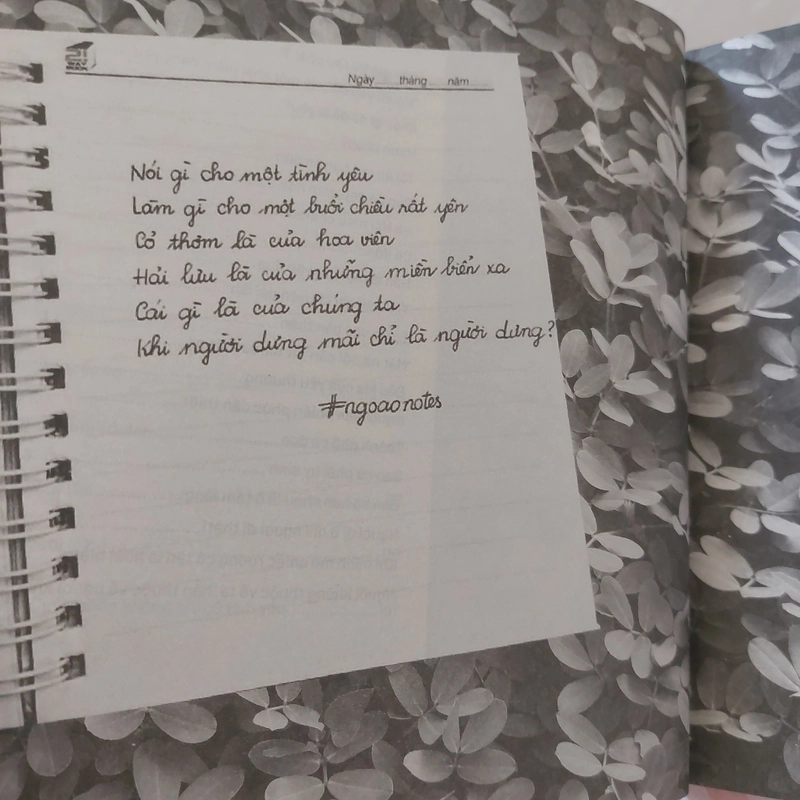 Ngày tháng năm
Nói gì cho một tình yêu
Làm gì cho một buổi chiều rất yên
Cỏ thơm là của hoa viên
Hải lưu là của những miền biển xa
Cái gì là của chúng ta
Khi người dưng mãi chỉ là người dưng?
#ngoaonotes